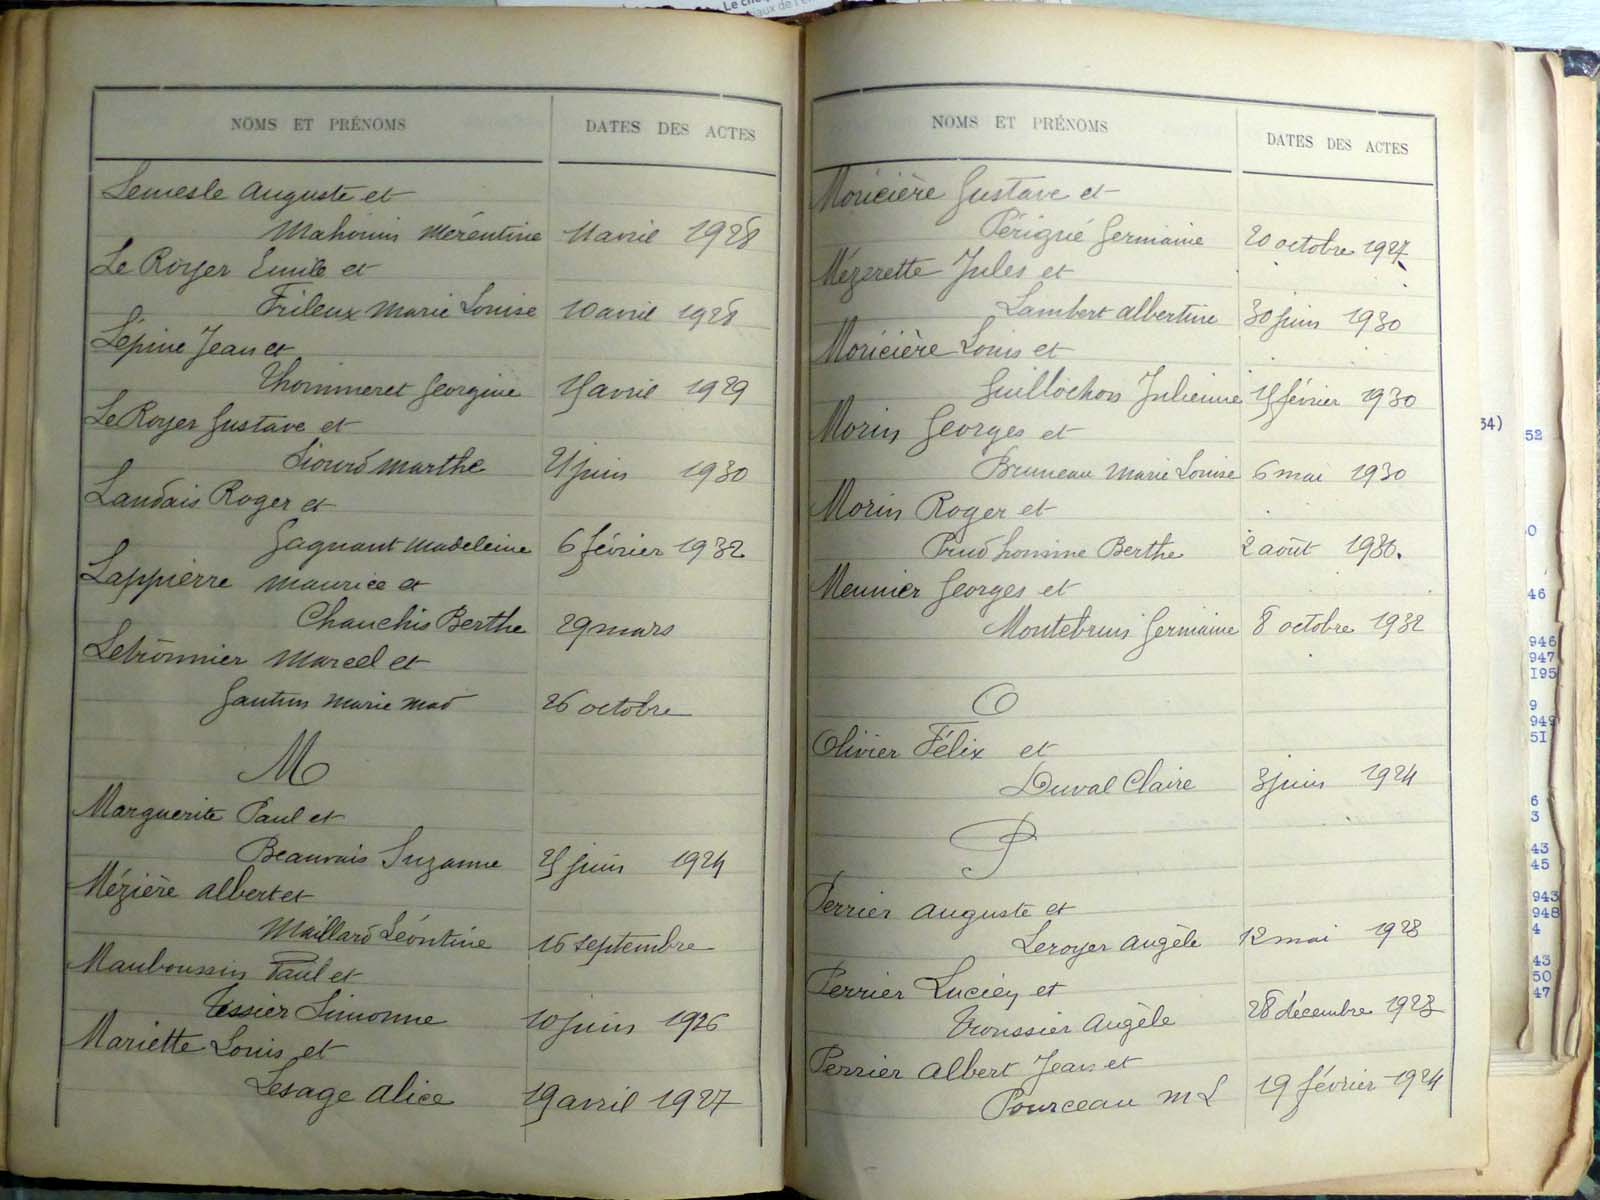 NOMS ET PRÉNOMS
DATES DES ACTES
Lemesle Auguste et
Mahouin Mérentine 11 avril 1928
Le Royer Emile et
Frileux Marie Louise 10 avril 1928
Lépine Jean et
Thommeret Georgine avril 1929
Le Royer Gustave et
Marthe juin 1930
Landais Roger et
Gagnant Madeleine 6 février 1932
Lappierre Maurice et
Chauchis Berthe 29 mars
Letronnier Marcel et
Marie Mad 26 octobre
M
Marguerite Paul et
Beauvais Suzanne juin 1924
Mézière Albert et
Maillard Léontine 16 septembre
Mauboussin Paul et
Tessier Simonne 10 juin 1926
Mariette Louis et
Lesage Alice 19 avril 1927
NOMS ET PRÉNOMS
DATES DES ACTES
Moricière Gustave et
Périgné Germaine 20 octobre 1927
Mézerette Jules et
Lambert Albertine 30 juin 1930
Moricière Louis et
Guillochon Julienne février 1930
Morin Georges et
Bruneau Marie Louise 6 mai 1930
Morin Roger et
Prudhomme Berthe 2 août 1930.
Meunier Georges et
Montebrun Germaine 8 octobre 1932
O
Olivier Félix et
Duval Claire 3 juin 1924
P
Perrier Auguste et
Leroyer Angèle 12 mai 1923
Perrier Lucien et
Troussier Angèle 28 décembre 1923
Perrier Albert Jean et
Pourceau M L 19 février 1924
34)
52
0
46
946
947
I95
9
949
5I
6
3
43
45
943
948
4
43
50
47